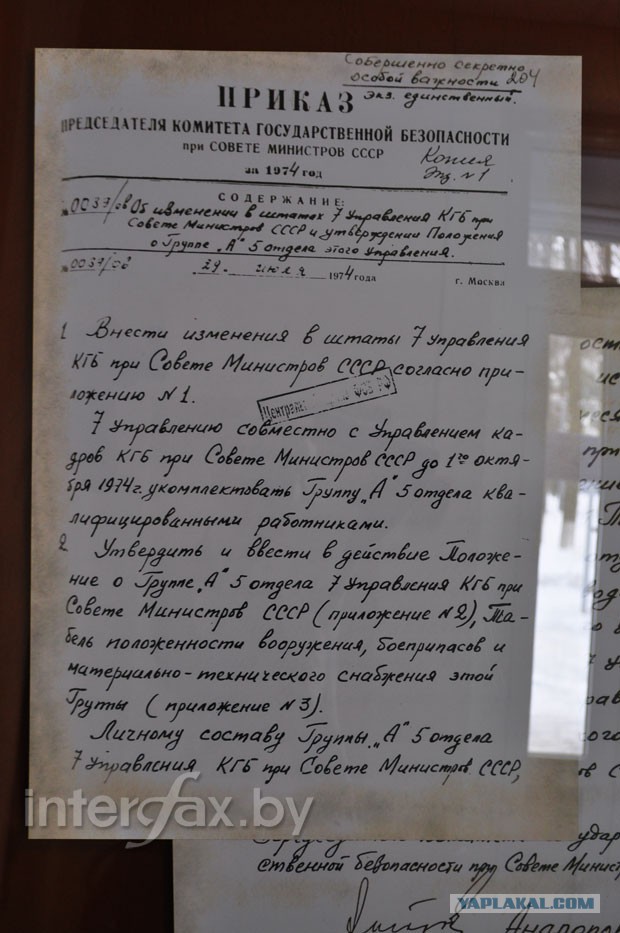 Совершенно секретно
особой важности 204
Экз. единственный.
ПРИКАЗ
ПРЕДСЕДАТЕЛЯ КОМИТЕТА ГОСУДАРСТВЕННОЙ БЕЗОПАСНОСТИ
при СОВЕТЕ МИНИСТРОВ СССР
Копия
Экз. №1
за 1974 год
СОДЕРЖАНИЕ:
№ 0037/ов Об изменении в штатах 7 Управления КГБ при
Совете Министров СССР и утверждении Положения
о Группе „А" 5 отдела этого Управления.
№ 0037/ов 29 июля 1974 года г. Москва
1 Внести изменения в штаты 7 Управления
КГБ при Совете Министров СССР согласно при-
ложению №1.
ФСБ РФ
7 Управлению совместно с Управлением ка-
дров КГБ при Совете Министров СССР до 1го октя-
бря 1974 г. укомплектовать Группу „А" 5 отдела ква-
лифицированными работниками.
2 Утвердить и ввести в действие Положе-
ние о Группе „А" 5 отдела 7 Управления КГБ при
Совете Министров СССР (приложение №2), Та-
бель положенности вооружения, боеприпасов и
материально-технического снабжения этой
Группы (приложение №3).
Личному составу Группы „А" 5 отдела
7 Управления КГБ при Совете Министров СССР,
interfax.by
ственной безопасности при Совете Минист
YAPLAKAL.COM